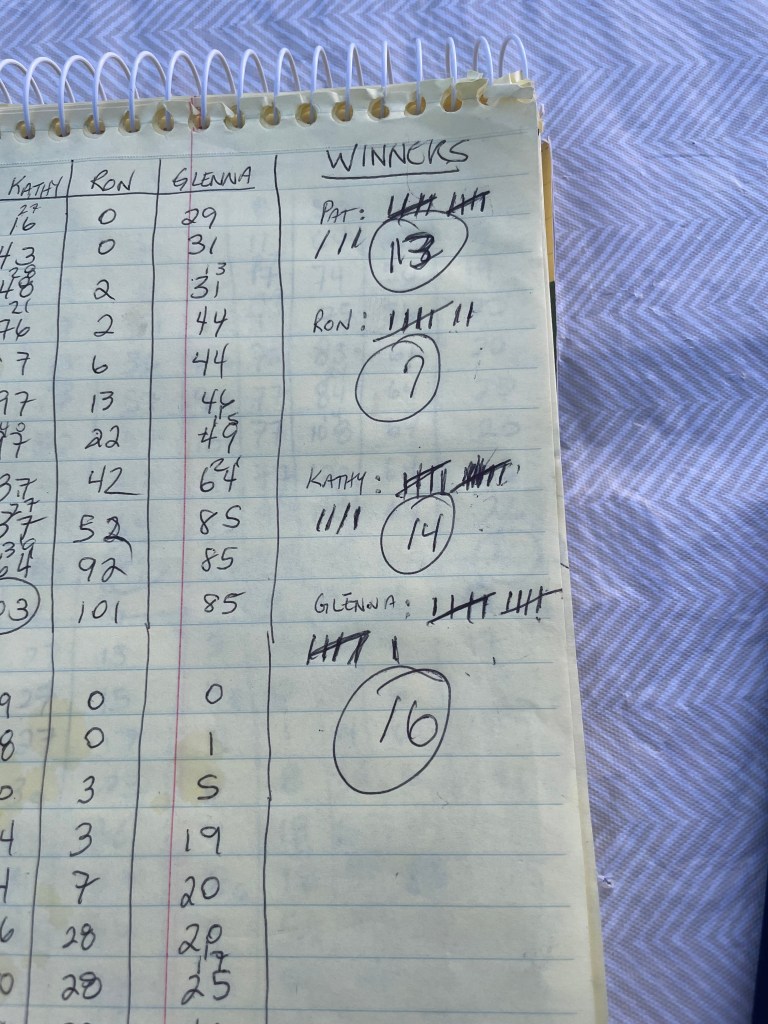 WINNERS
KATHY RON GLENNA
27
16 0 29
PAT: 卌 卌
43 0 31
/ / / 13
28 13
48 2 31
21
76 2 44
RON: 卌 / /
7 6 44
7
97 13 46
15
22 49
37 42 64
KATHY: 卌 卌
52 85
/ / / / 14
92 85
03 101 85
GLENNA: 卌 卌
卌 /
9 0 0
16
8 0 1
3 5
4 3 19
7 20
6 28 20
17
0 28 25